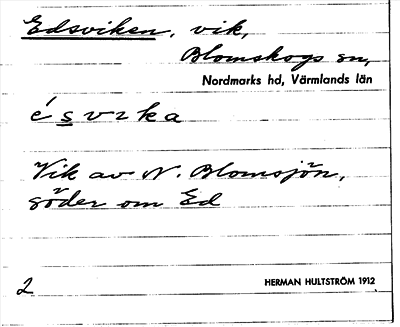 Edsviken, vik,
Blomskogs sn,
Nordmarks hd, Värmlands län
é s v ɩ k a
Vik av N. Blomsjön,
söder om Ed
2 HERMAN HULTSTRÖM 1912